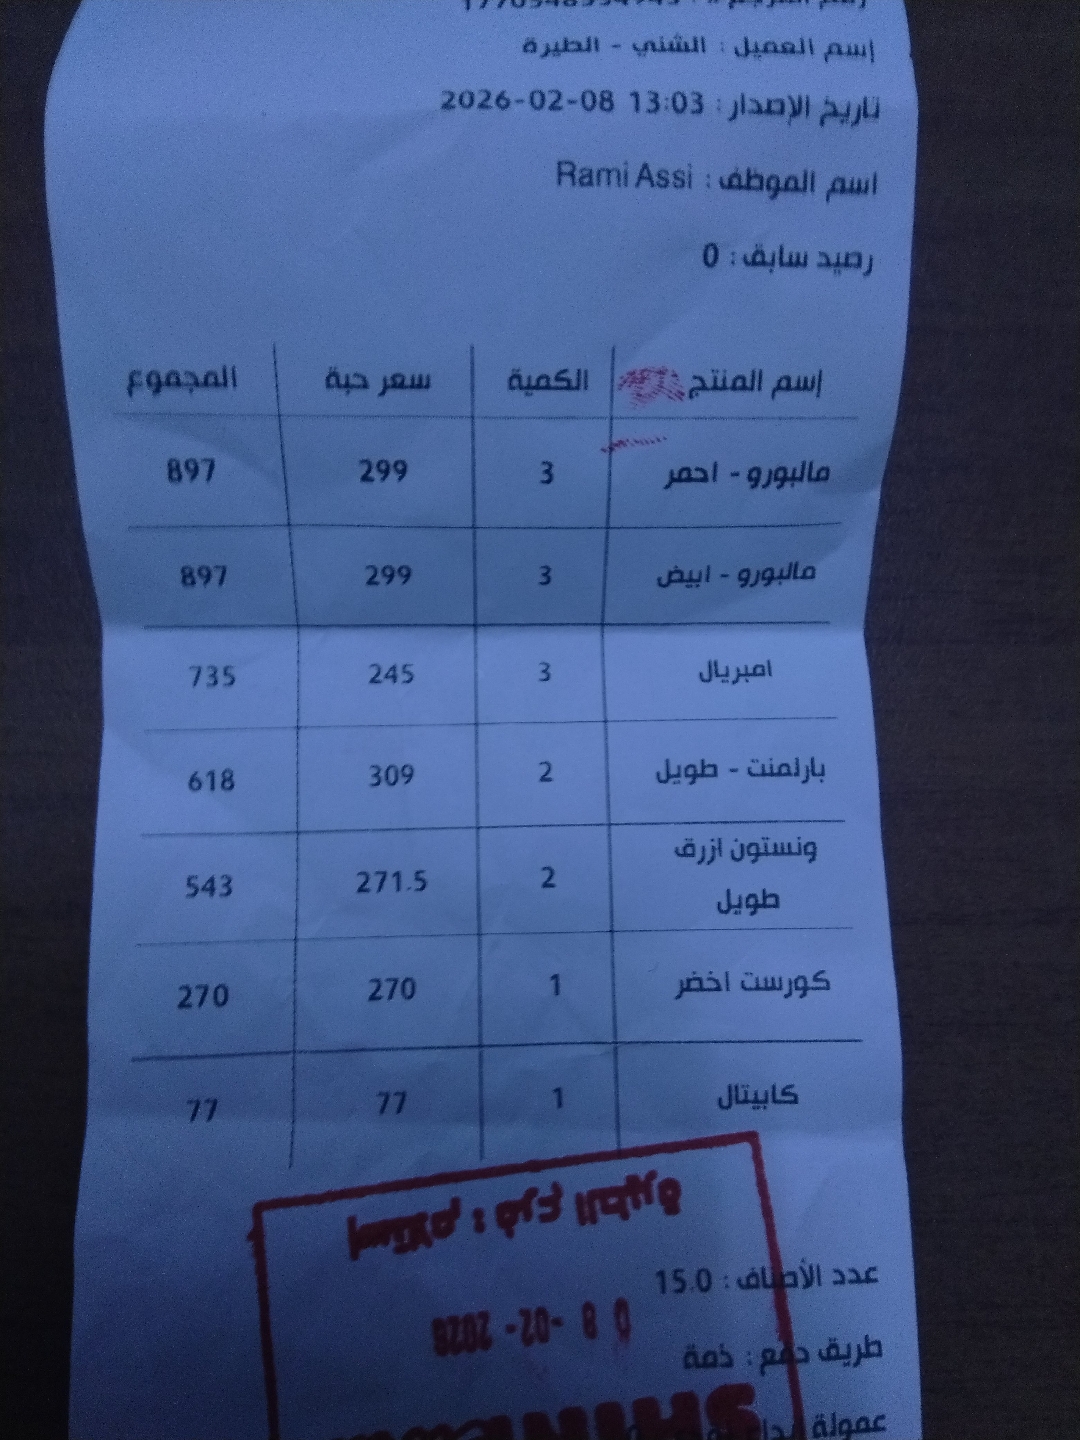 إسم العميل : الشني - الطيرة
تاريخ الإصدار : 2026-02-08 13:03
اسم الموظف : Rami Assi
رصيد سابق : 0
إسم المنتج الكمية سعر حبة المجموع
مالبورو - احمر 3 299 897
مالبورو - ابيض 3 299 897
امبريال 3 245 735
بارلمنت - طويل 2 309 618
ونستون ازرق
طويل 2 271.5 543
كورست اخضر 1 270 270
كابيتال 1 77 77
إستلام : فرع الطيرة
عدد الأصناف : 15.0
08 -02- 2026
طريق دفع : ذمة
عمولة